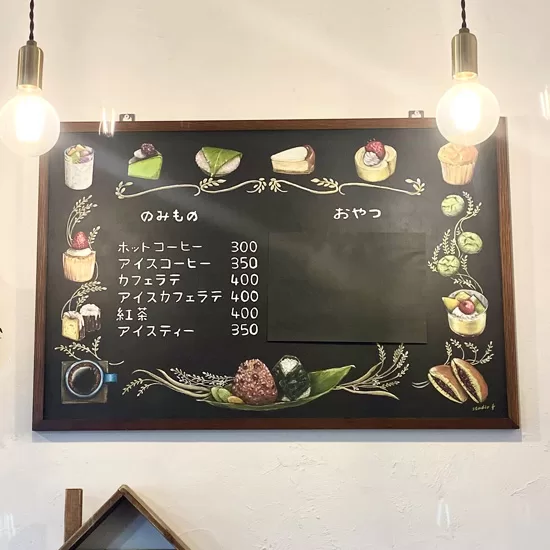 のみもの
ホットコーヒー 300
アイスコーヒー 350
カフェラテ 400
アイスカフェラテ 400
紅茶 400
アイスティー 350
おやつ